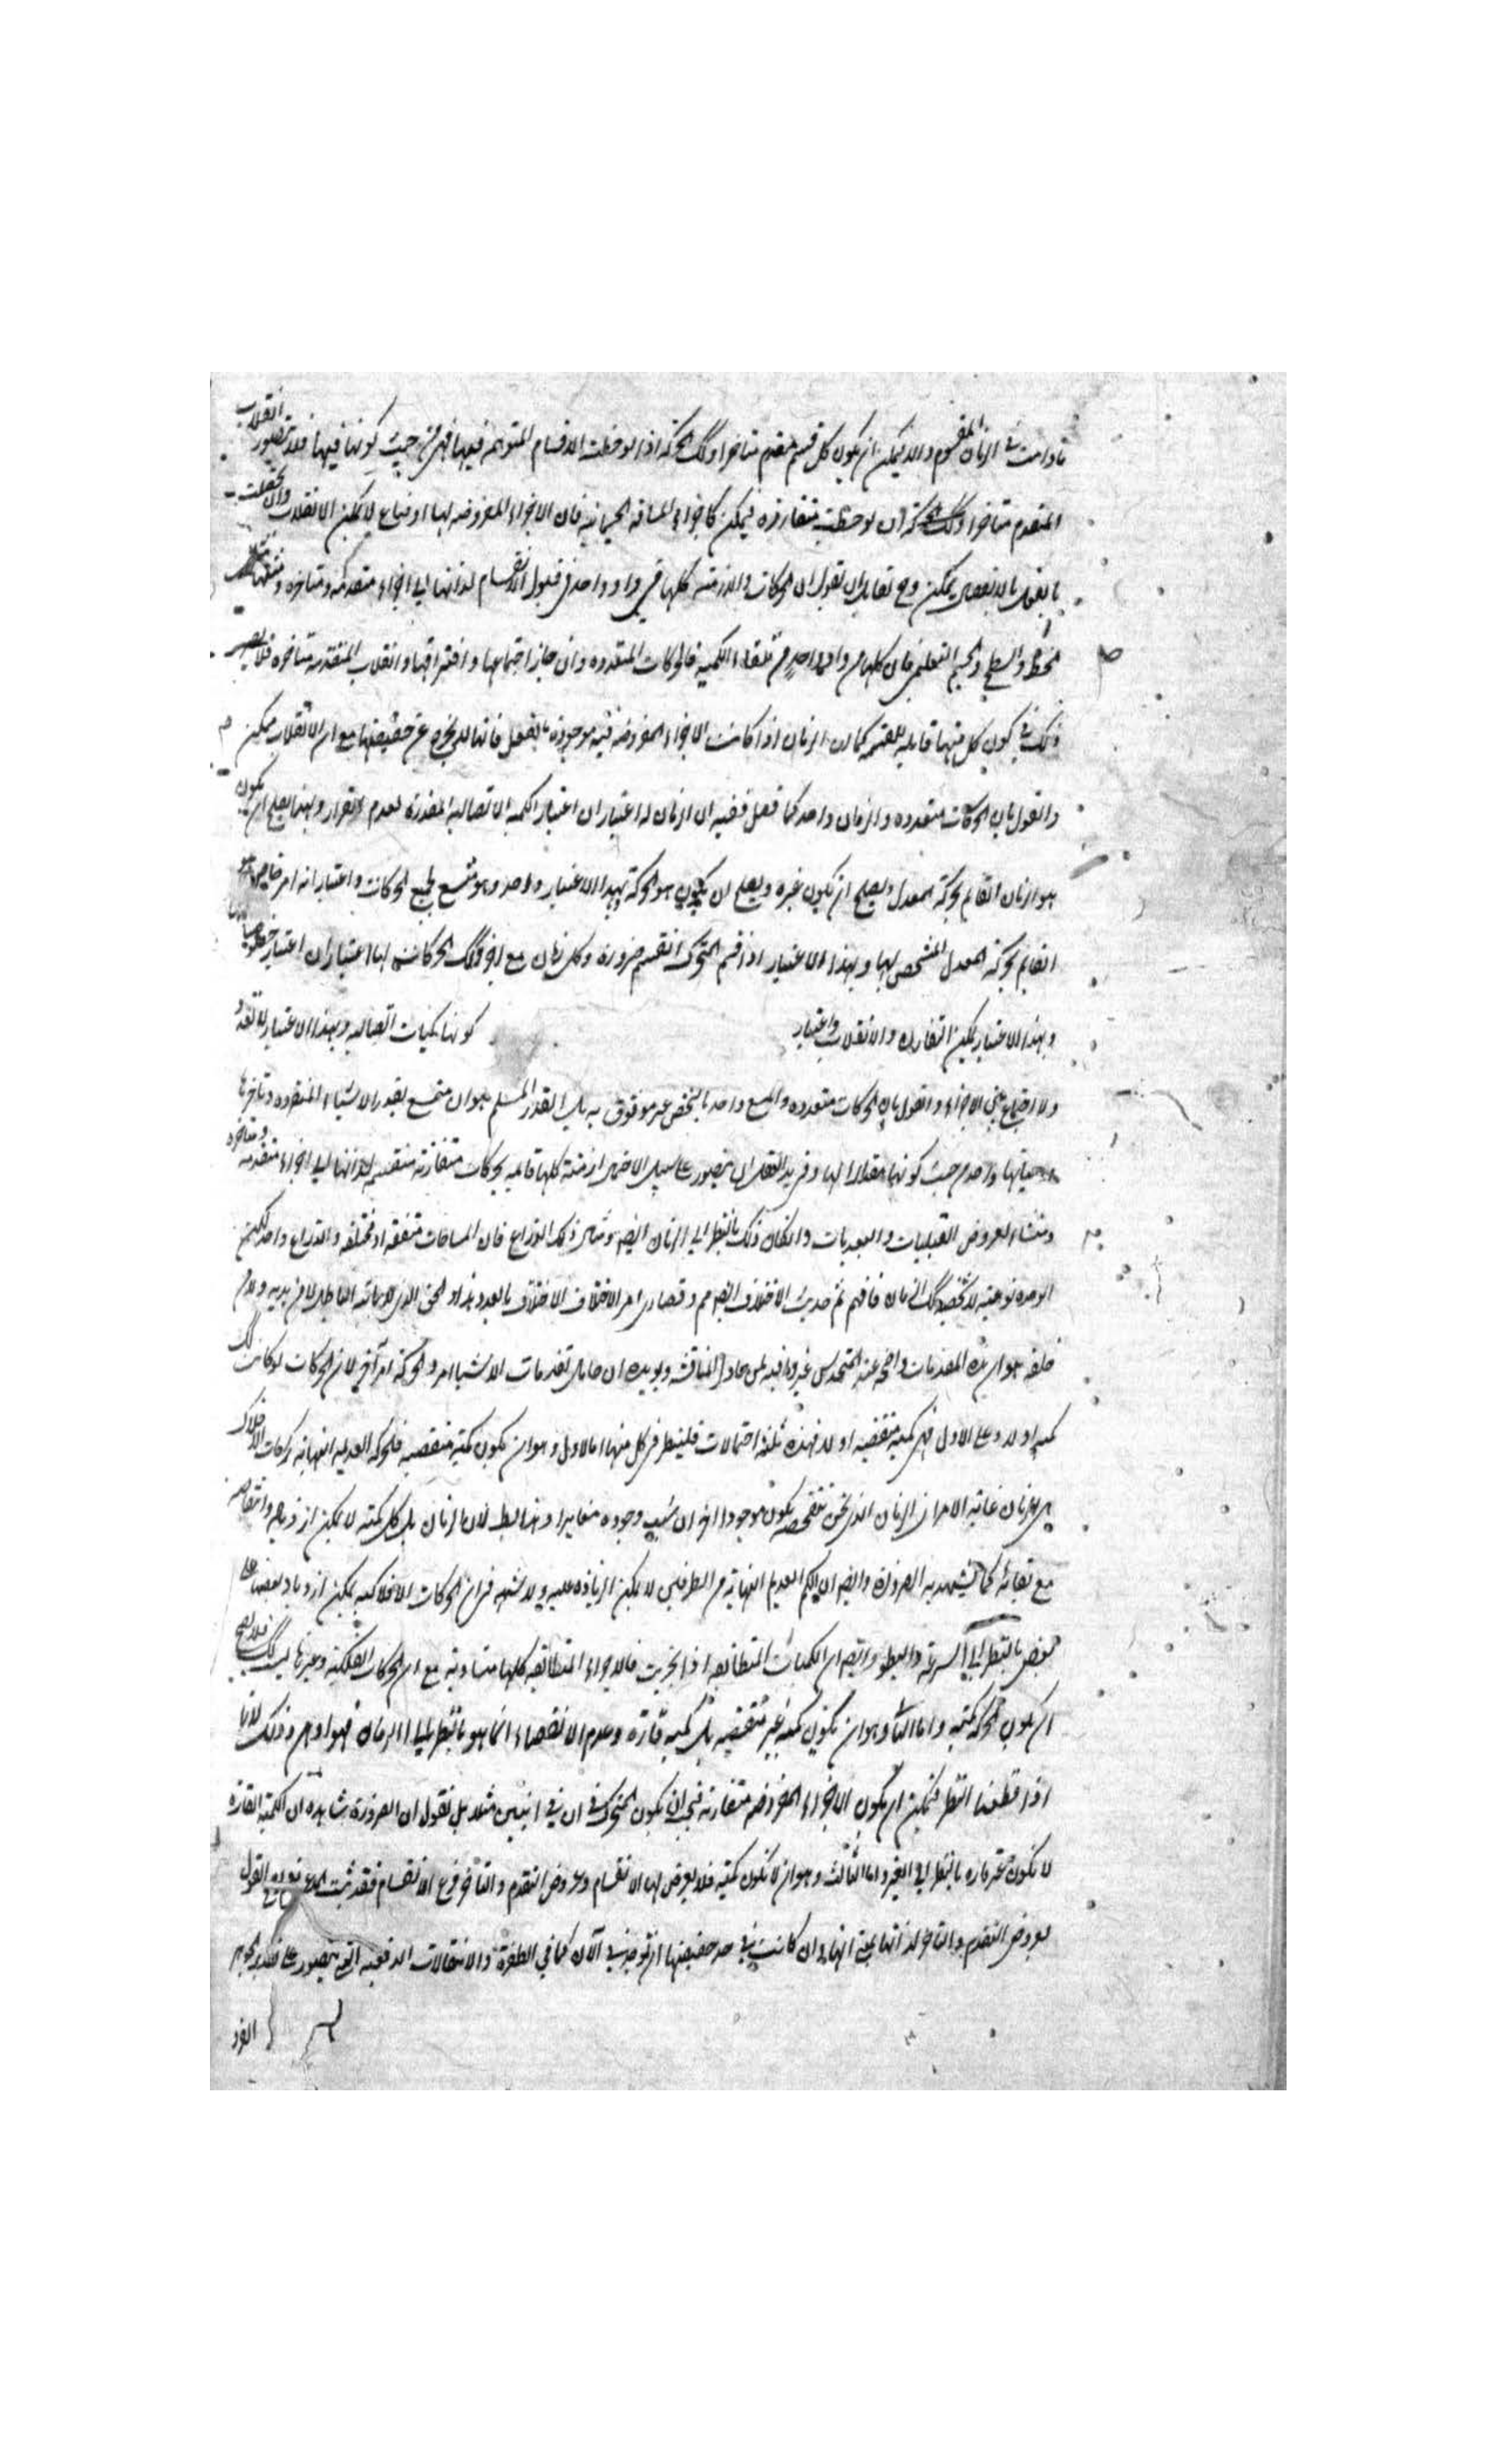 ما دامت في الزمان المقسوم والا فيمكن ان يكون كل قسم متقدم متاخرا وكك الحركة اذا لوحظت الاقسام المتوهمة فيها فهي من حيث كونها فيها فلا يتصور انقلاب
المتقدم متاخرا وكك الحركة ان لوحظت متفارزة فيمكن كاجزاء المسافة فان الاجزاء المفروضة لها اوضاع لا يمكن الانقلاب والا
بالفعل بالانفصال يمكن وح لقائل ان يقول ان الحركات والازمنة كلها في واد واحد في قبول الانقسام لذاتها الى اجزاء متقدمة ومتاخرة
الخط والسطح والجسم التعليمي فان كلها من واد واحد من تلقاء الكمية فالحركات المتعددة وان جاز اجتماعها وافتراقها وانقلاب المتقدمة متاخرة فلا يضر
ذلك في كون كل منها قابلة للقسمة كما ان الزمان اذا كانت الاجزاء المفروضة فيه موجودة بالفعل فانها لا يخرج عن حقيقتها مع ان الانقلاب ممكن
والقول بان الحركات متعددة والزمان واحد كما فصل ففيه ان الزمان له اعتباران اعتبار الكمية الاتصالية المقدرة لعدم القرار وبهذا يصلح ان يكون
هو الزمان القائم بحركة المعدل ويصلح ان يكون غيره ويصلح ان يكون هو الحركة بهذا الاعتبار واحد وهو متسع لجميع الحركات واعتبار انه امر خاص
القائم بحركة المعدل المتشخص بها وبهذا الاعتبار اذا قسم المتحرك انقسم ضرورة وكل زمان مع اخر وكك الحركات لها اعتباران اعتبار
وبهذا الاعتبار يمكن التفارز والانقلاب واعتبار كونها كميات اتصالية وبهذا الاعتبار لا تعدد
ولا اجتماع بين الاجزاء والقول بان الحركات متعددة والجميع واحد بالشخص غير موثوق به بل القدر المسلم هو ان متسع يقدر الاشياء المتقدمة وتاخرها
ومعيتها واحد من حيث كونها مقدارا لها وفريد العقل ان يتصور على سبيل الاجمال ازمنة كلها قائمة بحركات متفارزة منقسمة لذاتها الى اجزاء متقدمة ومتاخرة
ومنشاء لعروض القبليات والبعديات وامكان ذلك بالنظر الى الزمان ايضا ومثال ذلك الذراع فان المسافات متفقة او مختلفة والذراع واحد لكن
الوحدة نوعية لا شخصية وكك الزمان فافهم ثم حديث الاختلاف ايضا مم وقصارى امر الاختلاف الاختلاف بالعدد هذا هو الحق الذي لا ياتيه الباطل لا من بين يديه ولا من
خلفه هو ان هذه المقدمات واضحة عند المتحدس غير وافية لمن حاول المناقشة ويويده ان حامل تقدمات الاشياء امر والحركة امر آخر لان الحركات لو كانت كك
كمية او لا وعلى الاول فهي كمية متقضية او لا فهذه ثلثة احتمالات فلينظر في كل منها اما الاول وهو ان يكون كمية متقضية فالحركة العديمة النهاية كحركات الافلاك
هي الزمان غاية الامر ان الزمان الذي نحن نتفحصه يكون موجودا اخر ان ثبت وجوده مغايرا وهذا ايضا بط لان الزمان بل كل كمية لا يمكن ازدياده وانتقاصه
مع بقائه كما يشهد به الضرورة وايضا ان الكم العديم النهاية من الطرفين لا يمكن الزيادة عليه ولا شبهة في ان الحركات الافلاكية يمكن ازدياد بعضها على
بعض بالنظر الى السرعة والبطوء وايضا ان الكميات المتطابقة اذا تجزيت فالاجزاء المتطابقة كلها متساوية مع ان الحركات الفلكية وغيرها ليست كك فلا يصح
ان يكون الحركة كمية واما الثاني وهو ان يكون كمية غير متقضية بل كمية قارة وعدم الانقضاء انما هو بالنظر الى الزمان فهو اوهن وذلك لانا
اذا قطعنا النظر فيمكن ان يكون الاجزاء المفروضة متفارزة فيجب ان يكون المتحرك في آن في اينين مثلا بل نقول ان الضرورة شاهدة ان الكمية القارة
لا تكون غير قارة بالنظر الى الغير واما الثالث وهو ان لا تكون كمية فلا يعرض لها الانقسام وعروض التقدم والتاخر فرع الانقسام فقد ثبت المدعى القول
بعروض التقدم والتاخر لذاتها بمعنى انها وان كانت في حد حقيقتها ان توجد في الآن كما في الطفرة والانتقالات الدفعية التي يتصور على تقدير الجوهر
الفرد